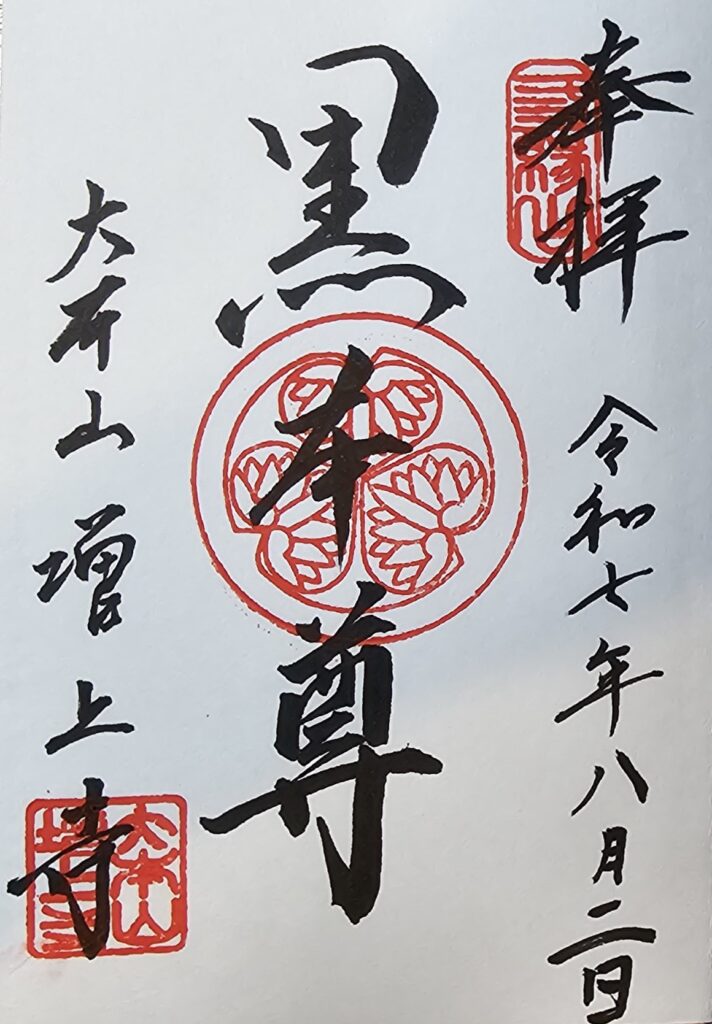 奉拝
三縁山
令和七年八月二日
黒本尊
大本山 増上寺
大本山
増上寺